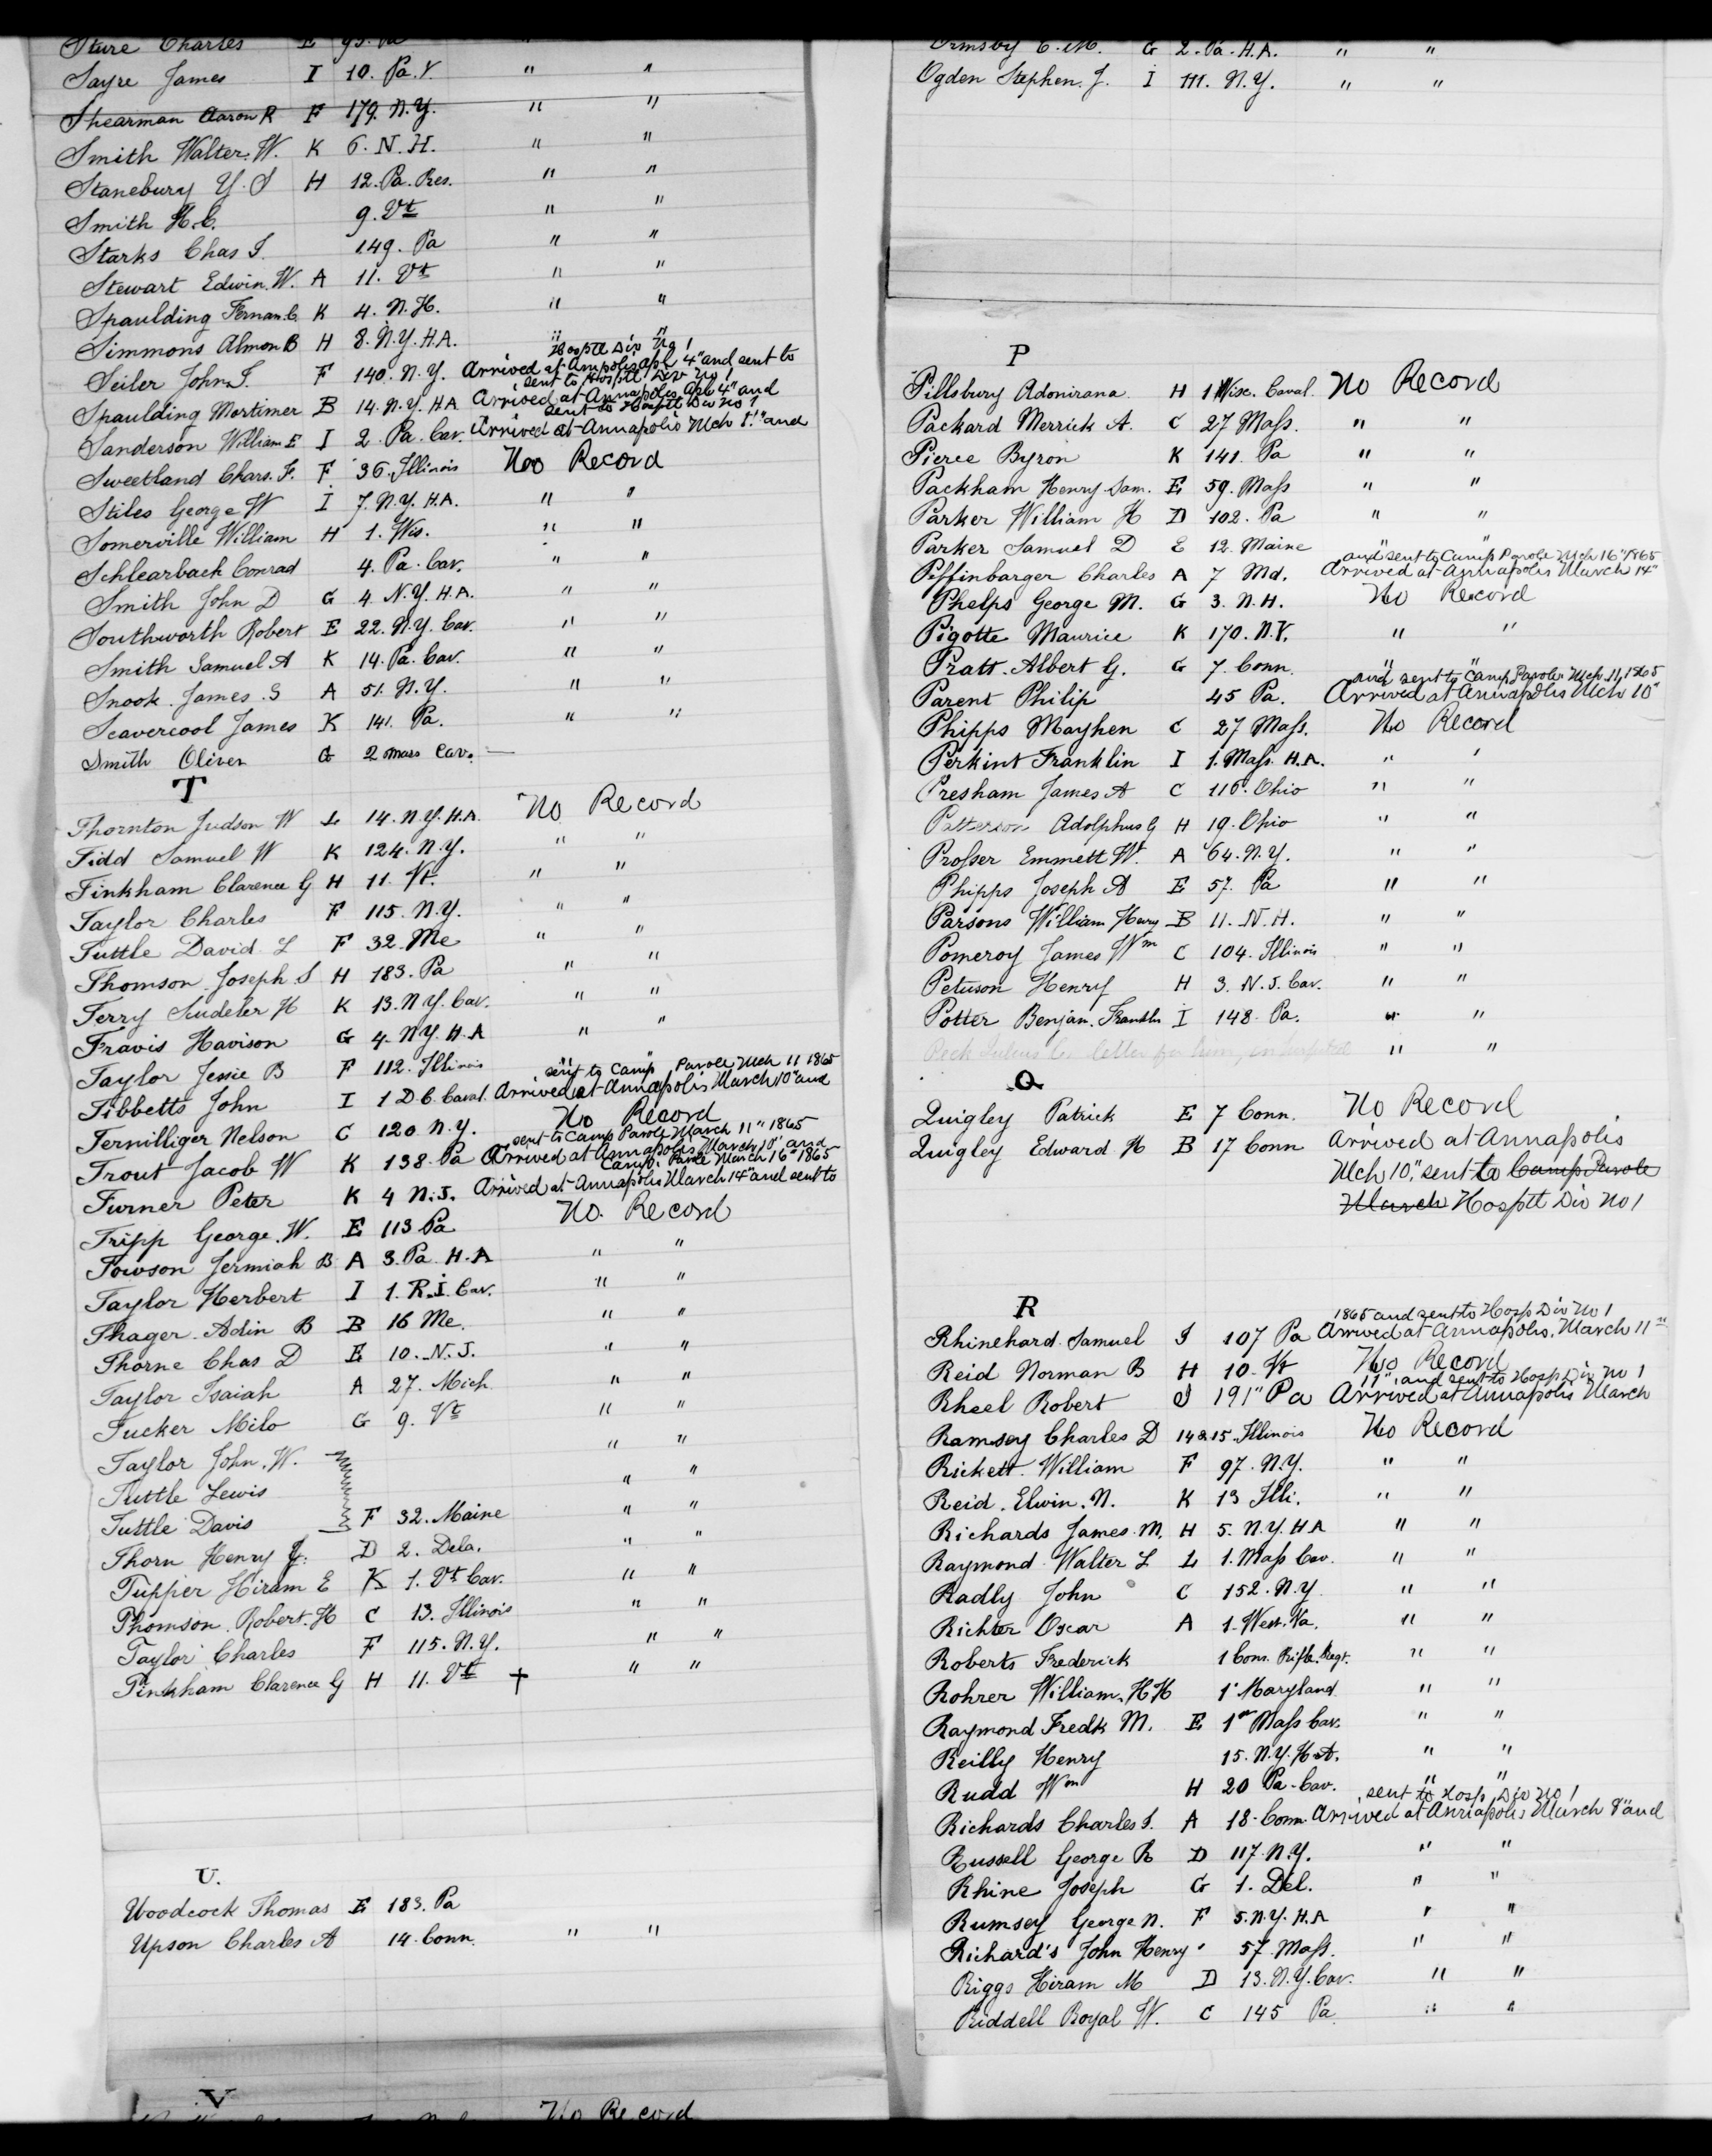 Sture Charles E 93. Pa " "
Sayre James I 10. Pa. V. " "
Shearman Aaron R F 179. N.Y. " "
Smith Walter. W. K 6. N. H. " "
Stanebury Y. S H 12. Pa. Res. " "
Smith H. C. 9. Vt " "
Starks Chas I. 149. Pa " "
Stewart Edwin. W. A 11. Vt " "
Spaulding Fernan. C. K 4. N. H. " "
Simmons Almon B H 8. N.Y. H.A. " "
Hosptl Div No 1
Seiler John. I. F 140. N.Y. Arrived at Anapolis Apl 4" and sent to
sent to Hosptl Div No 1
Spaulding Mortimer B 14. N.Y. HA Arrived at Annapolis Apl 4" and
sent to Hosptl Div No 1
Sanderson William E I 2. Pa. Cav. Arrived at Annapolis Mch 8" and
Sweetland Chars. F. F 36. Illinois No Record
Stiles George W I 7. N.Y. H.A. " "
Somerville William H 1. Wis. " "
Schlearback Conrad 4. Pa. Cav. " "
Smith John D G 4. N.Y. H.A. " "
Southworth Robert E 22. N.Y. Cav. " "
Smith Samuel A K 14. Pa. Cav. " "
Snook. James. S A 51. N.Y. " "
Seavercool James K 141. Pa. " "
Smith Oliver G 2 mass Cav. —
T
Thornton Judson W L 14. N.Y. H.A. No Record
Tidd Samuel W K 124. N.Y. " "
Tinkham Clarence G H 11. Vt. " "
Taylor Charles F 115. N.Y. " "
Tuttle David. L F 32. Me " "
Thomson Joseph. S H 183. Pa " "
Terry Sudeler H K 13. N.Y. Cav. " "
Travis Havison G 4. N.Y. H.A " "
Taylor Jessie B F 112. Illinois " "
sent to Camp Parole Mch 11 1865
Tibbetts John I 1 D.C. Caval. Arrived at Annapolis March 10" and
Terwilliger Nelson C 120. N.Y. No Record
sent to Camp Parole March 11" 1865
Trout Jacob W K 138. Pa Arrived at Annapolis March 10" and
Camp. Parole March 16" 1865
Turner Peter K 4 N.J. Arrived at Annapolis March 14" and sent to
Tripp George. W. E 113 Pa No. Record
Towson Jermiah B A 3. Pa. H.A " "
Taylor Herbert I 1. R.I. Cav. " "
Thager. Adin B B 16 Me. " "
Thorne Chas D E 10. N. J. " "
Taylor Isaiah A 27. Mich. " "
Tucker Milo G 9. Vt " "
Taylor John. W. " "
Tuttle Lewis " "
Tuttle Davis F 32. Maine " "
Thorn Henry Y. D 2. Dela. " "
Tupper Hiram E K 1. Vt Cav. " "
Thomson. Robert. H C 13. Illinois " "
Taylor Charles F 115. N.Y. " "
Pinkham Clarence G H 11. Vt † " "
U.
Woodcock Thomas E 183. Pa
Upson Charles A 14. Conn. " "
V
No Record
Ormsby C. M. G 2. Pa. H.A. " "
Ogden Stephen. J. I 111. N.Y. " "
P
Pillsbury Adonirana. H 1 Wisc. Caval. No Record
Packard Merrick A. C 27 Mass. " "
Pierce Byron K 141. Pa " "
Packham Henry. Sam. E 59. Mass " "
Parker William H D 102. Pa " "
Parker Samuel D E 12. Maine " "
and sent to Camp Parole Mch 16" 1865
Piffinbarger Charles A 7 Md. Arrived at Annapolis March 14"
Phelps George M. G 3. N.H. No Record
Pigotte Maurice K 170. N.Y. " "
Pratt. Albert G. G 7. Conn. " "
and sent to Camp Parole Mch 11, 1865
Parent Philip 45 Pa. Arrived at Annapolis Mch 10"
Phipps Mayhen C 27 Mass. No Record
Perkint Franklin I 1. Mass. H.A. " "
Presham James A C 116. Ohio " "
Patterson Adolphus G H 19. Ohio " "
Prosser Emmett W. A 64. N.Y. " "
Phipps Joseph A E 57. Pa " "
Parsons William Henry B 11. N.H. " "
Pomeroy James Wm C 104. Illinois " "
Petuson Henry H 3. N.J. Cav. " "
Potter Benjan. Franklin I 148. Pa. " "
Peck Julius C. letter for him, in hospital " "
Q
Quigley Patrick E 7 Conn. No Record
Quigley Edward. H B 17 Conn Arrived at Annapolis
Mch 10". sent to Camp Parole
March Hosptl Div No 1
R
1865 and sent to Hosp Div No 1
Rhinehard. Samuel I 107 Pa Arrived at Annapolis. March 11"
Reid Norman B H 10. Vt No Record
11", and sent to Hosp Div No 1
Rheel Robert I 191" Pa Arrived at Annapolis March
Ramsey Charles D 148.15. Illinois No Record
Rickett. William F 97. N.Y. " "
Reid. Elwin. N. K 13 Illi. " "
Richards James. M. H 5. N.Y. HA " "
Raymond Walter L L 1. Mass Cav. " "
Radly John C 152. N.Y " "
Richter Oscar A 1. West. Va. " "
Roberts Frederick 1 Conn. Rifle. Regt. " "
Rohrer William. H H 1" Maryland " "
Raymond Fredk M. E 1st Mass Cav. " "
Reilly Henry 15. N.Y. H.A. " "
Rudd Wm H 20 Pa. Cav. " "
sent to Hosp, Div No 1
Richards Charles I. A 18. Conn. Arrived at Annapolis March 8" and
Russell George R D 117. N.Y. " "
Rhine Joseph G 1. Del. " "
Rumsey George N. F 5. N.Y. H.A " "
Richard's John Henry 57. Mass. " "
Riggs Hiram M D 13. N.Y. Cav. " "
Riddell Royal W. C 145 Pa. " "